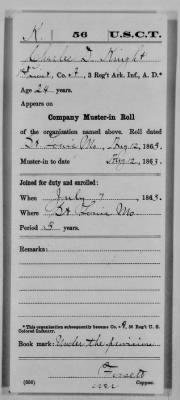 K | 56 | U.S.C.T.
Charles D. Knight
Co. F, 3 Reg't Ark. Inf., A. D.*
Age 24 years.
Appears on
Company Muster-in Roll
of the organization named above. Roll dated
St. Louis Mo, Aug 12, 1863.
Muster-in to date Aug 12, 1863.
Joined for duty and enrolled:
When July 7, 1863.
Where St. Louis Mo
Period 3 years.
Remarks:
* This organization subsequently became Co. F, 56 Reg't U. S.
Colored Infantry.
Book mark: Under the provision
(356) over Copyist.